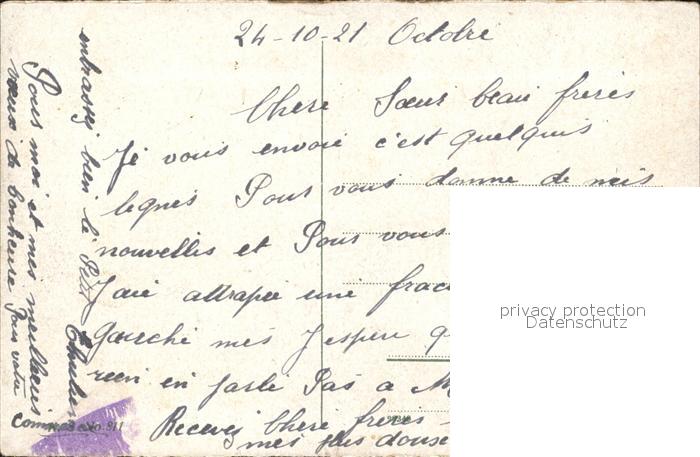 24-10-21 Octobre
Chere Sœur beau freres
Je vous envoie c'est quelquis
legnes Pour vous donne de mis
nouvellis et Pour vous
J'aie attrapée une frac
gauche mes J'esperu q
rien en parle Pas a M
Recevez Chere freres
mes plus douse
embrassez bien le Petit
Pour moi et mes meilleurs
vœux de bonheure Pour votre
privacy protection
Datenschutz